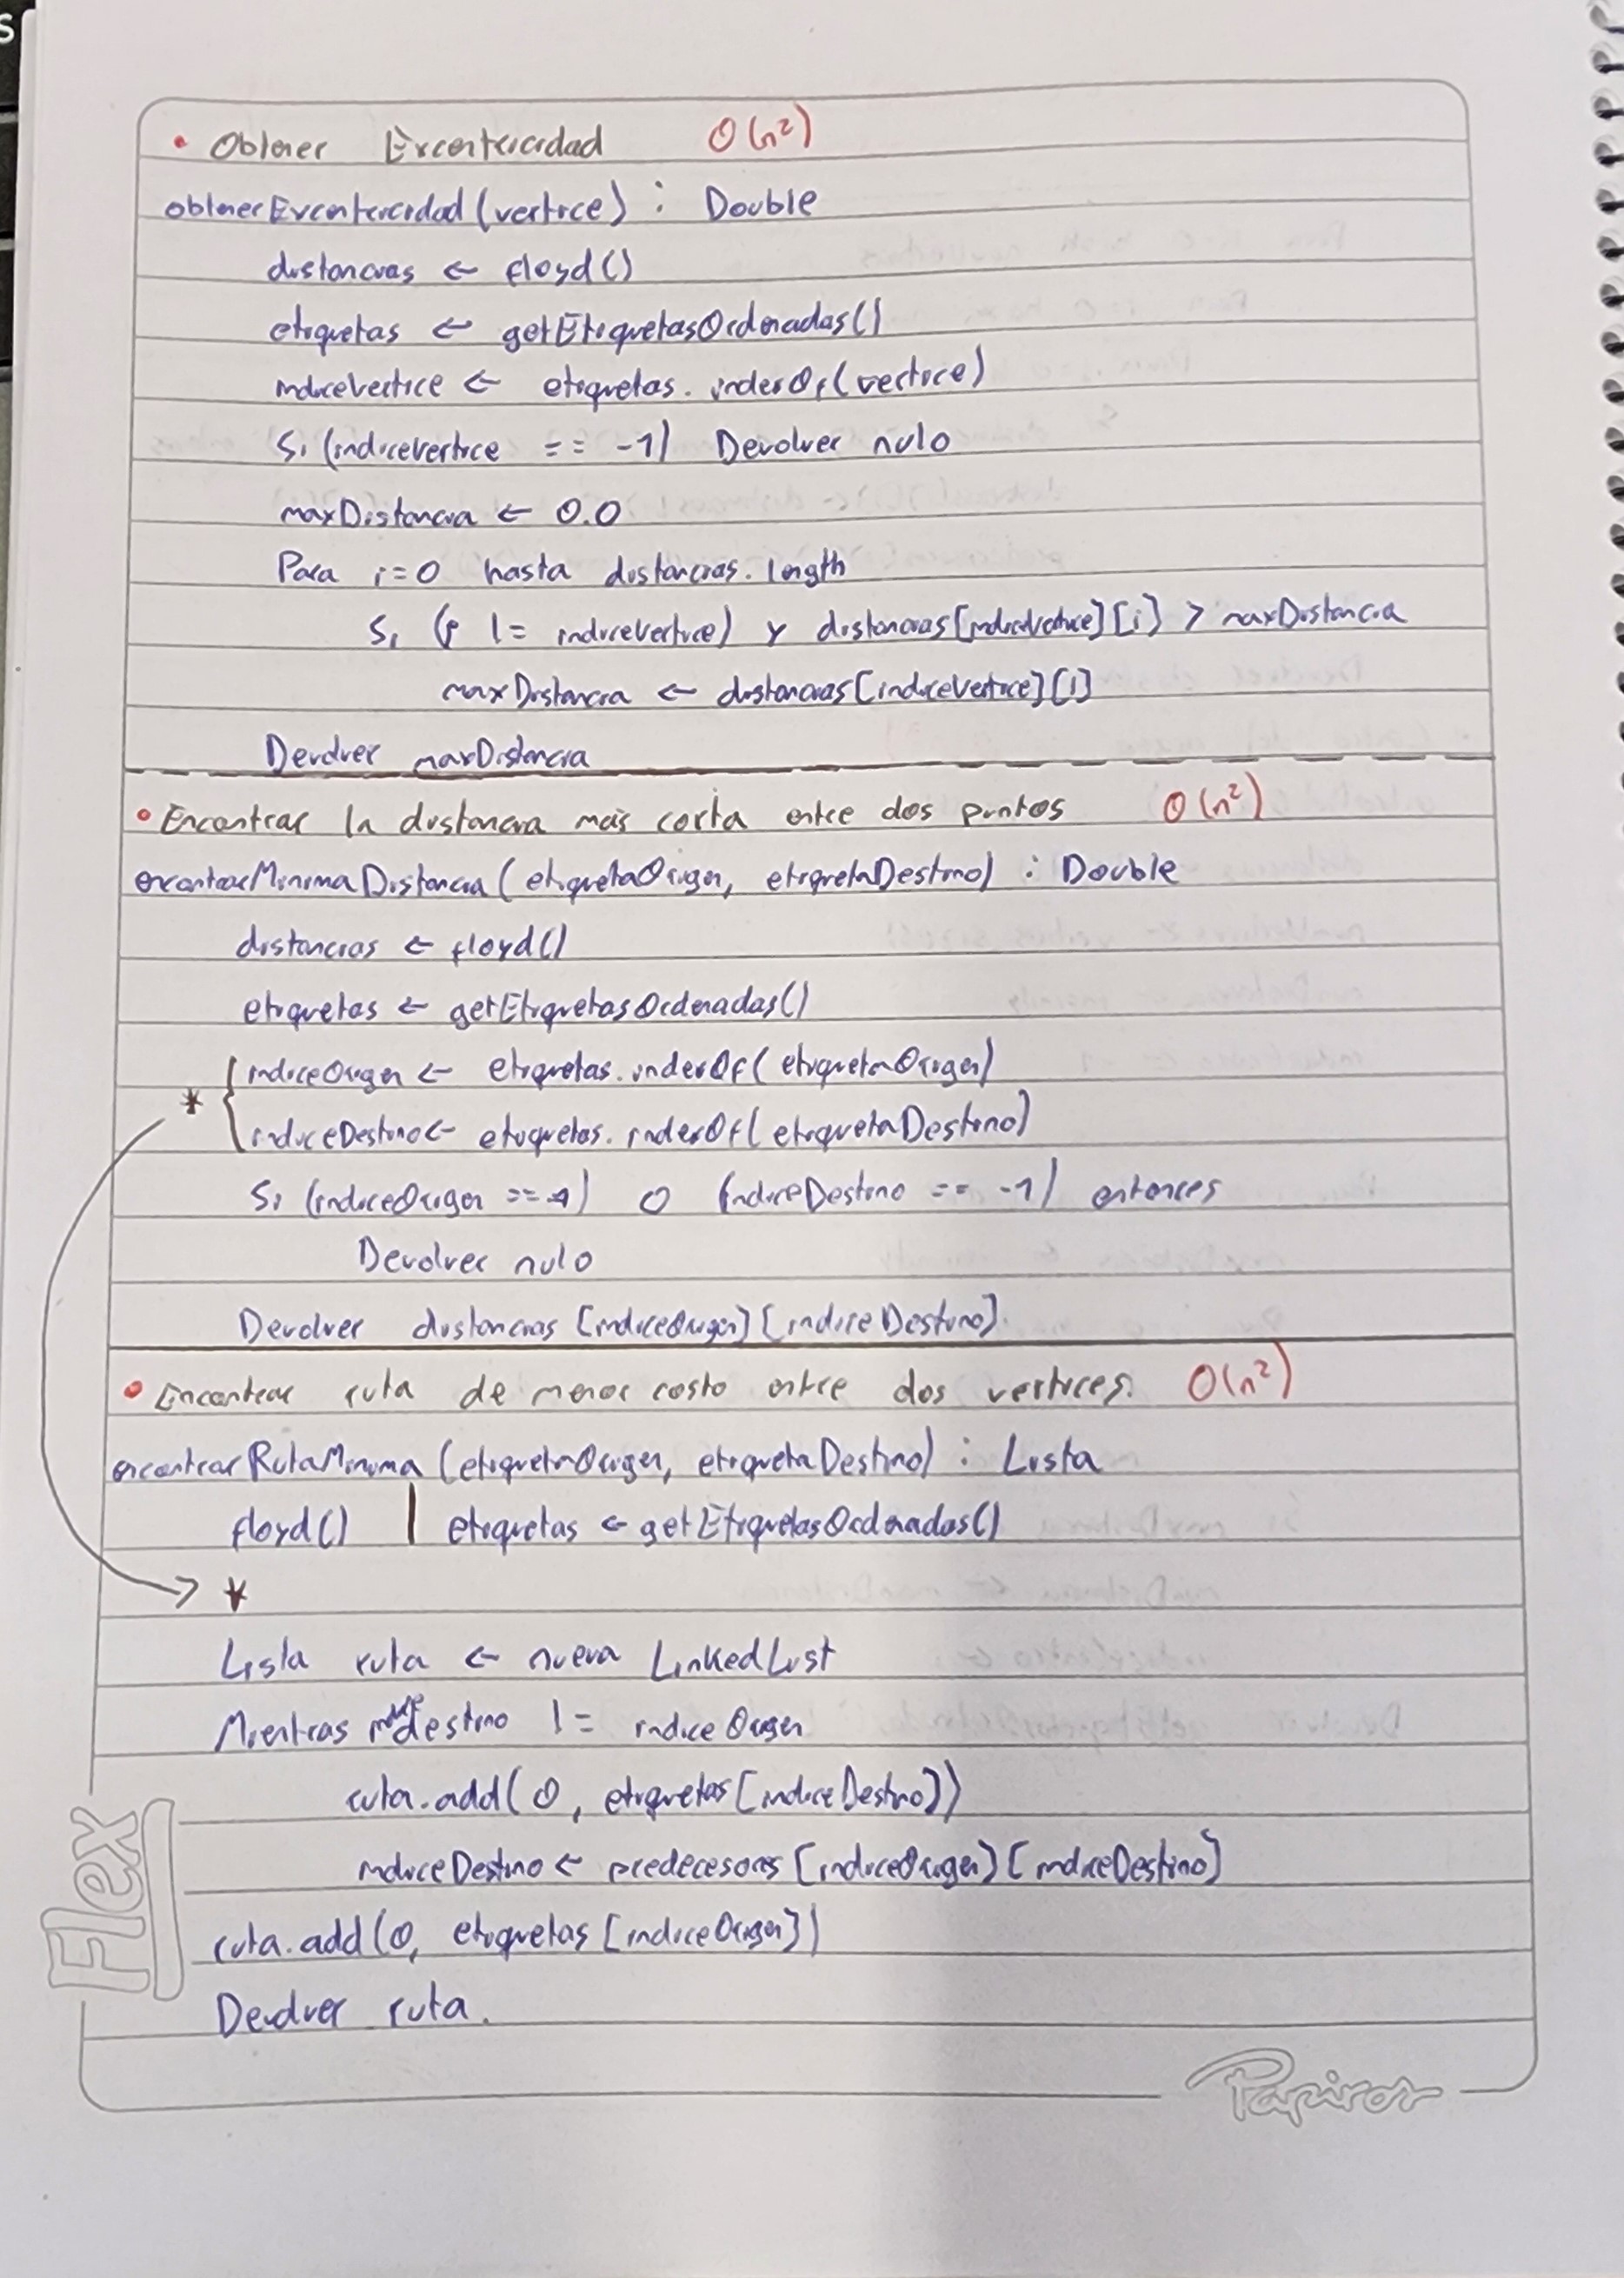 S
• Obtener Excentericidad O(n²)
obtenerExcentericidad(vertice) : Double
distancias ← floyd()
etiquetas ← getEtiquetasOrdenadas()
indiceVertice ← etiquetas.indexOf(vertice)
Si (indiceVertice == -1) Devolver nulo
maxDistancia ← 0.0
Para i=0 hasta distancias.length
Si (i != indiceVertice) y distancias[indiceVertice][i] > maxDistancia
maxDistancia ← distancias[indiceVertice][i]
Devolver maxDistancia
• Encontrar la distancia más corta entre dos puntos O(n²)
encontrarMinimaDistancia(etiquetaOrigen, etiquetaDestino) : Double
distancias ← floyd()
etiquetas ← getEtiquetasOrdenadas()
indiceOrigen ← etiquetas.indexOf(etiquetaOrigen)
* { indiceDestino ← etiquetas.indexOf(etiquetaDestino)
Si (indiceOrigen == -1) O (indiceDestino == -1) entonces
Devolver nulo
Devolver distancias[indiceOrigen][indiceDestino].
• Encontrar ruta de menor costo entre dos vertices. O(n²)
encontrarRutaMinima (etiquetaOrigen, etiquetaDestino) : Lista
floyd() | etiquetas ← getEtiquetasOrdenadas()
*
Lista ruta ← nueva LinkedList
Mientras indice destino != indice Origen
ruta.add(0, etiquetas[indiceDestino])
indiceDestino ← predecesores[indiceOrigen][indiceDestino]
ruta.add(0, etiquetas[indiceOrigen])
Devolver ruta.
Flex
Papiros